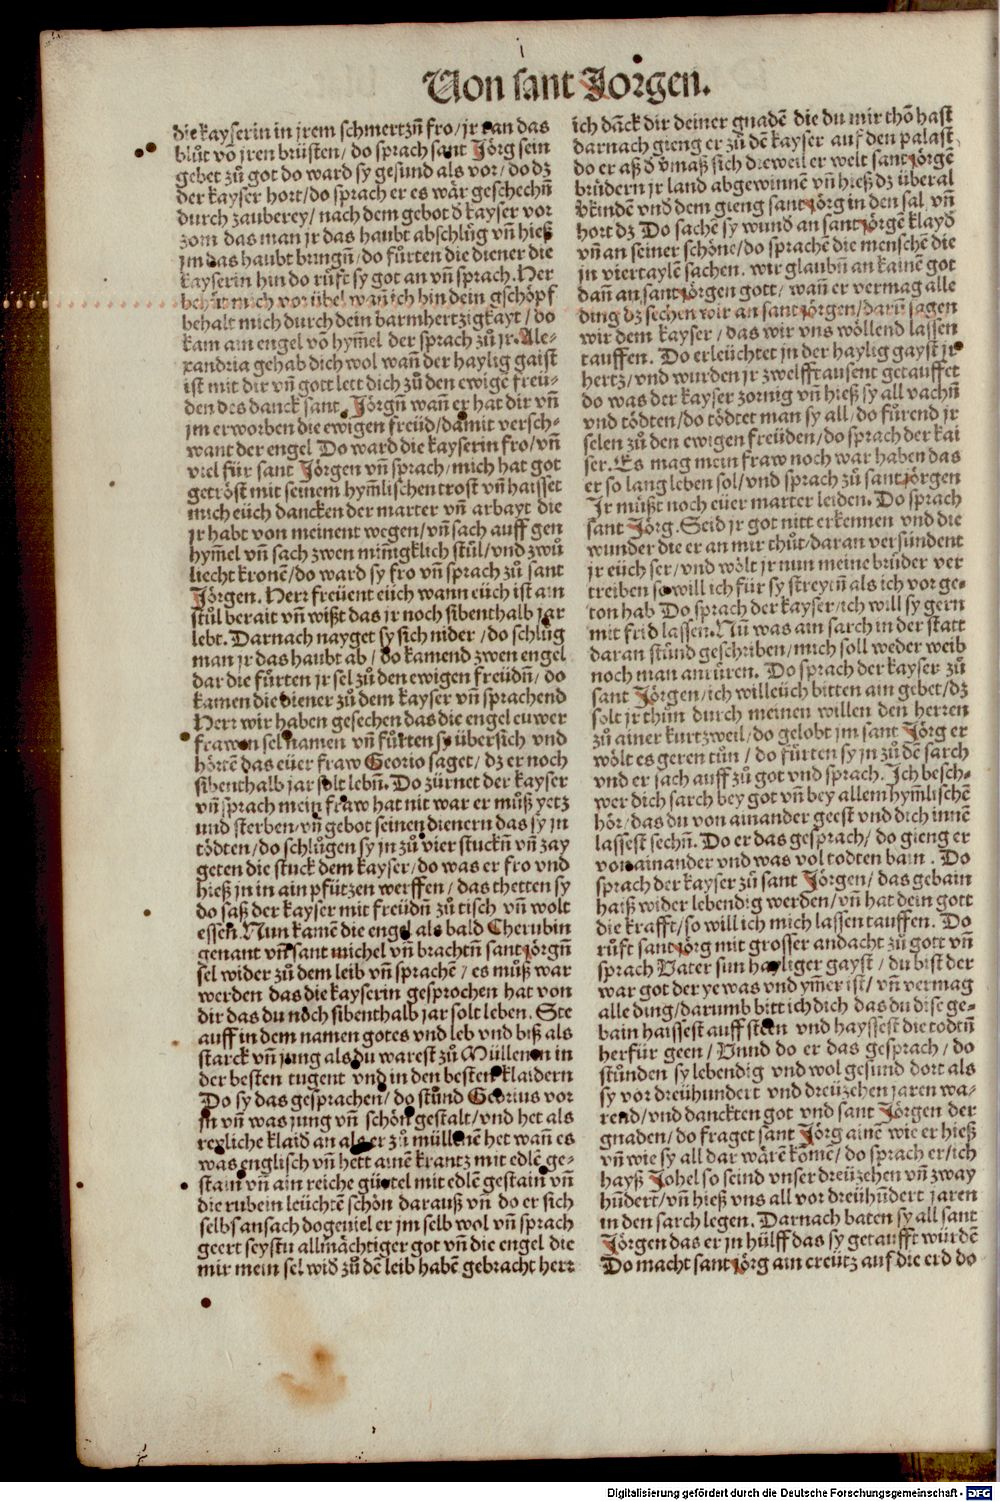 Von sant Jörgen.
die kayserin in jrem schmertzñ fro/ jr ran das
blůt vō jren brüsten/ do sprach sant Jörg sein
gebet zů got do ward sy gesund als vor/ do dz
der kayser hort/ do sprach er es wär geschechñ
durch zauberey/ nach dem gebot d̕ kayser vor
zorn das man jr das haubt abschlůg vñ hieß
jm das haubt bringñ/ do fůrten die diener die
kayserin hin do růft sy got an vñ sprach. Herr
behůt mich vor übel wañ ich bin dein gschöpf
behalt mich durch dein barmhertzigkayt/ do
kam ain engel vō hym̄el der sprach zů jr. Ale-
xandria gehab dich wol wañ der haylig gaist
ist mit dir vñ gott lett dich zů den ewigē freü-
den des danck sant Jörgñ wañ er hat dir vñ
jm erworben die ewigen freüd/ damit versch-
want der engel Do ward die kayserin fro/ vñ
viel für sant Jörgen vñ sprach/ mich hat got
getröst mit seinem hym̄lischen trost vñ haisset
mich eüch dancken der marter vñ arbayt die
jr habt von meinent wegen/ vñ sach auff gen
hym̄el vñ sach zwen miñigklich stůl/ vnd zwů
liecht kronē/ do ward sy fro vñ sprach zů sant
Jörgen. Herr freüent eüch wann eüch ist ain
stůl berait vñ wißt das jr noch sibenthalb jar
lebt. Darnach nayget sy sich nider/ do schlůg
man jr das haubt ab/ do kamend zwen engel
dar die fůrten jr sel zů den ewigen freüdñ/ do
kamen die diener zů dem kayser vñ sprachend
Herr wir haben gesechen das die engel euwer
frawen sel namen vñ fůrten sy übersich vnd
hörtē das eüer fraw Georio saget/ dz er noch
sibenthalb jar solt lebñ. Do zürnet der kayser
vñ sprach mein fraw hat nit war er můß yetz
und sterben/ vñ gebot seinen dienern das sy jn
tödten/ do schlůgen sy jn zů vier stuckñ vñ zay
geten die stuck dem kayser/ do was er fro vnd
hieß jn in ain pfützen werffen/ das thetten sy
do saß der kayser mit freüdñ zů tisch vñ wolt
essen. Nun kamē die engel als bald Cherubin
genant vñ sant michel vñ brachtñ sant jörgñ
sel wider zů dem leib vñ sprachē/ es můß war
werden das die kayserin gesprochen hat von
dir das du noch sibenthalb jar solt leben. Ste
auff in dem namen gotes vnd leb vnd biß als
starck vñ jung als du warest zů Müllenen in
der besten tugent vnd in den besten klaidern
Do sy das gesprachen/ do stůnd Georius vor
jn vñ was jung vñ schön gestalt/ vnd het als
rexliche klaid an als er zů müllenen het wañ es
was englisch vñ hett ainē krantz mit edlē ge-
stain vñ ain reiche gürtel mit edlē gestain vñ
die rubein leüchtē schön darauß vñ do er sich
selbs ansach do geviel er jm selb wol vñ sprach
geert seystu allmächtiger got vñ die engel die
mir mein sel wid̕ zů dē leib habē gebracht herr
ich dāck dir deiner gnadē die du mir thō hast
darnach gieng er zů dē kayser auf den palast
do er aß d̕ v̕maß sich dieweil er welt sant jörgē
brüdern jr land abgewinnē vñ hieß dz überal
v̕kindē vnd dem gieng sant jörg in den sal vñ
hort dz Do sachē sy wund an sant jörgē klayd
vñ an seiner schöne/ do sprachē die menschē die
jn viertaylē sachen. wir glaubñ an kainē got
dañ an sant jörgen gott/ wañ er vermag alle
ding dz sechen wir an sant jörgen/ darū sagen
wir dem kayser/ das wir vns wöllend lassen
tauffen. Do erleüchtet jn der haylig gayst jr
hertz/ vnd wurden jr zwelfftausent getauffet
do was der kayser zornig vñ hieß sy all vachñ
vnd tödten/ do tödtet man sy all/ do fůrend jr
selen zů den ewigen freüden/ do sprach der kai
ser. Es mag mein fraw noch war haben das
er so lang leben sol/ vnd sprach zů sant jörgen
Jr müßt noch eüer marter leiden. Do sprach
sant Jörg. Seid jr got nitt erkennen vnd die
wunder die er an mir thůt/ daran versündent
jr eüch ser/ vnd wölt jr nun meine brüder ver
treiben so will ich für sy streytñ als ich vor ge-
ton hab Do sprach der kayser/ ich will sy gern
mit frid lassen. Nū was ain sarch in der statt
daran stůnd geschriben/ mich soll weder weib
noch man anrüren. Do sprach der kayser zů
sant Jörgen/ ich will eüch bitten ain gebet/ dz
solt jr thůn durch meinen willen den herren
zů ainer kurtzweil/ do gelobt jm sant Jörg er
wölt es geren tůn/ do fůrten sy jn zů dē sarch
vnd er sach auff zů got vnd sprach. Ich besch-
wer dich sarch bey got vñ bey allem hym̄lischē
hör/ das du von ainander geest vnd dich innē
lassest sechñ. Do er das gesprach/ do gieng er
von ainander vnd was vol todten bain. Do
sprach der kayser zů sant Jörgen/ das gebain
haiß wider lebendig werden/ vñ hat dein gott
die krafft/ so will ich mich lassen tauffen. Do
růft sant jörg mit grosser andacht zů gott vñ
sprach Vater sun hayliger gayst/ du bist der
war got der ye was vnd ym̄er ist/ vñ vermag
alle ding/ darumb bitt ich dich das du dise ge-
bain haissest auff steen vnd hayssest die todtñ
herfür geen/ Vnnd do er das gesprach/ do
stůnden sy lebendig vnd wol gesund dort als
sy vor dreühundert vnd dreüzehen jaren wa-
rend/ vnd danckten got vnd sant Jörgen der
gnaden/ do fraget sant Jörg ainē wie er hieß
vñ wie sy all dar wärē kōmē/ do sprach er/ ich
hayß Johel so seind vnser dreüzehen vñ zway
hūdert/ vñ hieß vns all vor dreühūdert jaren
in den sarch legen. Darnach baten sy all sant
Jörgen das er jn hülff das sy getaufft würdē
Do macht sant jörg ain creütz auf die erd do
Digitalisierung gefördert durch die Deutsche Forschungsgemeinschaft - DFG